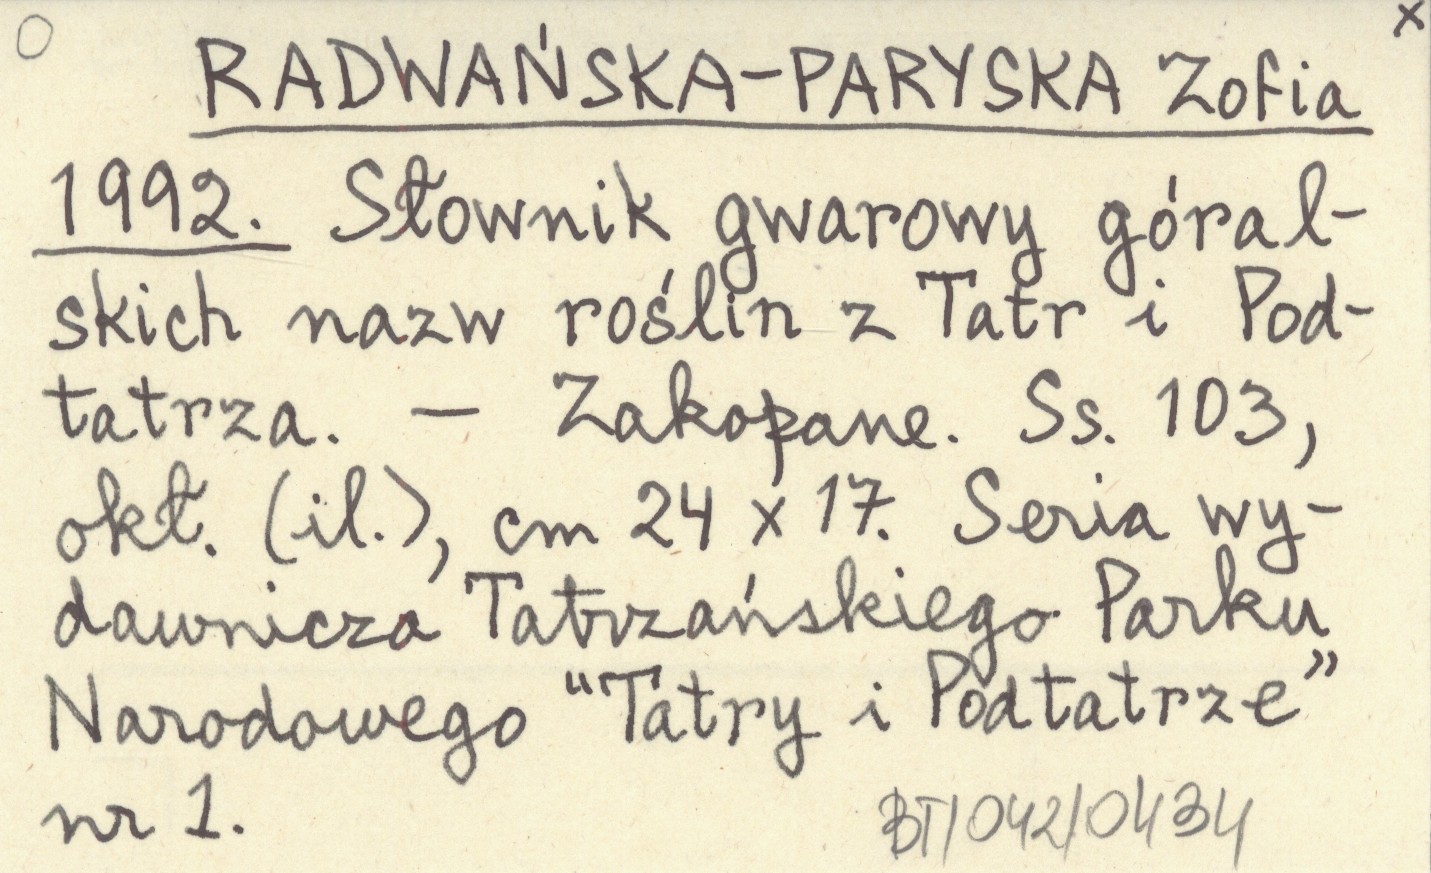 O x
RADWAŃSKA-PARYSKA Zofia
1992. Słownik gwarowy góral-
skich nazw roślin z Tatr i Pod-
tatrza. — Zakopane. Ss. 103,
okł. (il.), cm 24 x 17. Seria wy-
dawnicza Tatrzańskiego Parku
Narodowego “Tatry i Podtatrze”
nr 1.
BT/042/0434